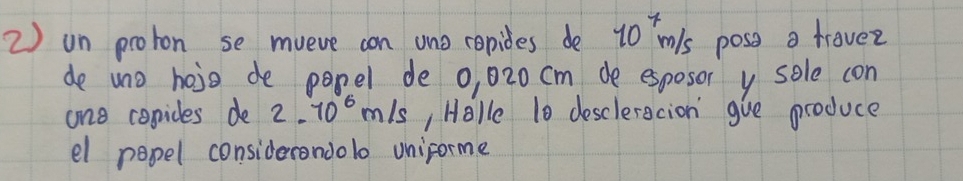 2) un proton se mueve con una rapides de 10⁷ m/s pasa a travez
de una hoja de papel de 0,020 cm de esposor y sale con
una rapides de 2.10⁶ m/s, Halle la descleracion que produce
el papel considerandolo uniforme